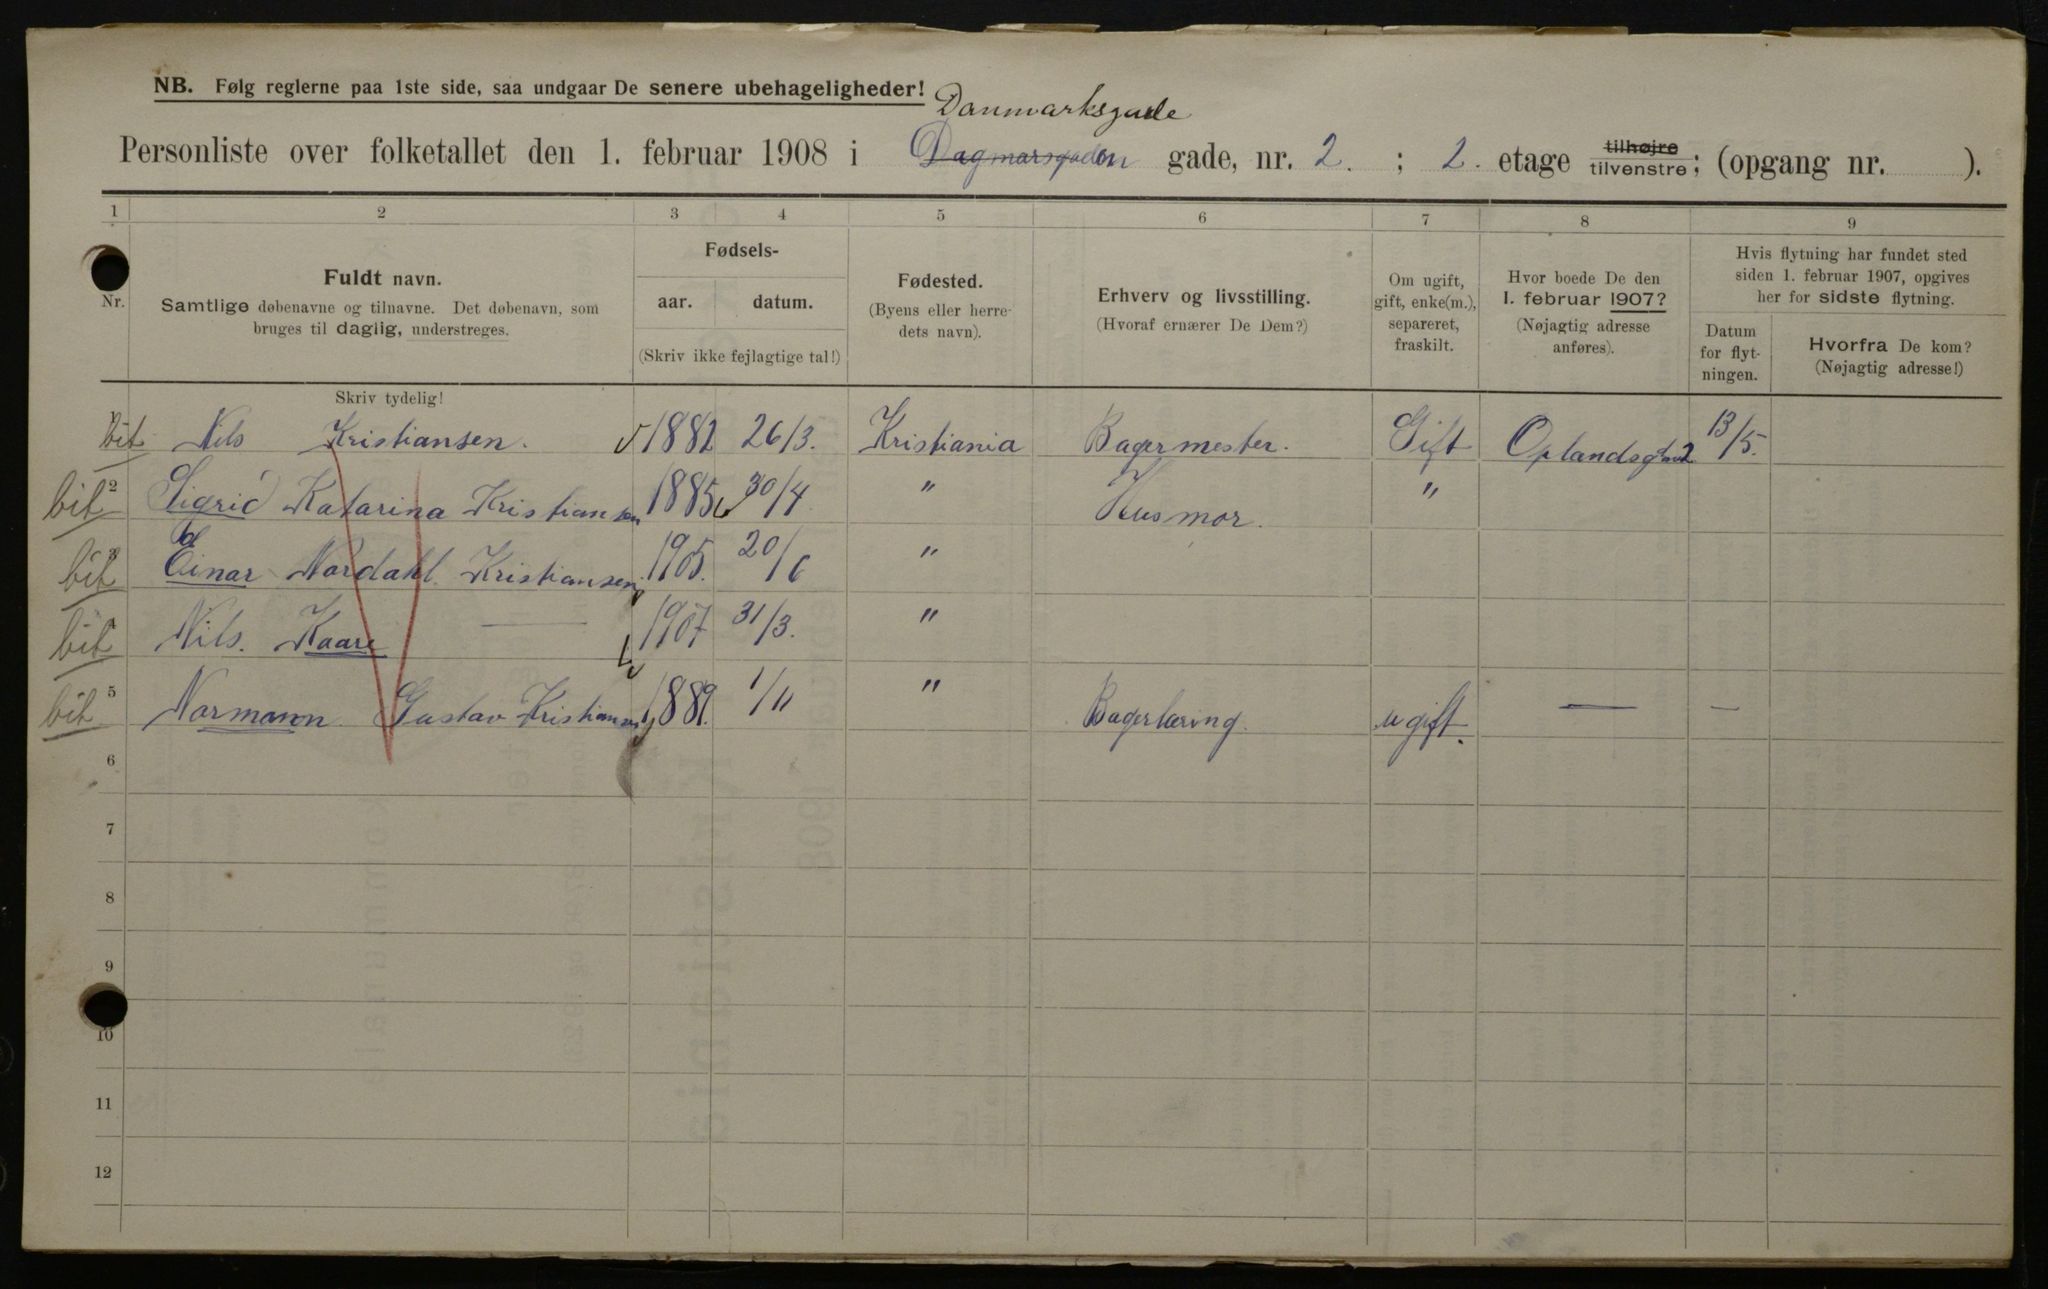 NB. Følg reglerne paa 1ste side, saa undgaar De senere ubehageligheder!
Danmarksgade
Personliste over folketallet den 1. februar 1908 i Dagmarsgaden gade, nr. 2. ; 2. etage tilhøjre tilvenstre; (opgang nr. ).
1 2 3 4 5 6 7 8 9
Nr.
Fuldt navn.
Samtlige døbenavne og tilnavne. Det døbenavn, som
bruges til daglig, understreges.
Skriv tydelig!
Fødsels-
aar. datum.
(Skriv ikke fejlagtige tal!)
Fødested.
(Byens eller herre-
dets navn).
Erhverv og livsstilling.
(Hvoraf ernærer De Dem?)
Om ugift,
gift, enke(m.),
separeret,
fraskilt.
Hvor boede De den
1. februar 1907?
(Nøjagtig adresse
anføres).
Hvis flytning har fundet sted
siden 1. februar 1907, opgives
her for sidste flytning.
Datum
for flyt-
ningen.
Hvorfra De kom?
(Nøjagtig adresse!)
bit Nils Kristiansen. 1882 26/3. Kristiania Bagermester. Gift Oplandsgd 2 13/5.
bit 2 Sigrid Katarina Kristiansen 1885 30/4 " Husmor. "
bit 3 Einar Nordahl Kristiansen 1905. 20/6 "
bit 4 Nils. Kaare — 1907 31/3. "
bit 5 Normann Gustav Kristiansen 1889. 1/11 " Bagerlæring. ugift. — —
6
7
8
9
10
11
12